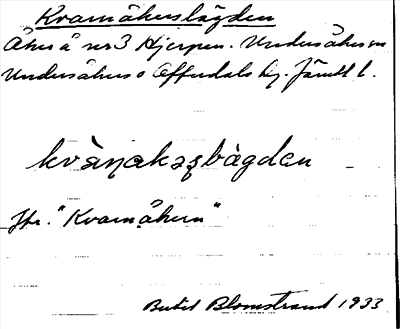 Kvarnåkerslägden
Åker å nr 3 Hjerpen. Undersåkers sn
Undersåkers o Offerdals tg. Jämtl l.
kvàṇakəṣlàgdən
Jfr. "Kvarnåkern"
Bertil Blomstrand 1933